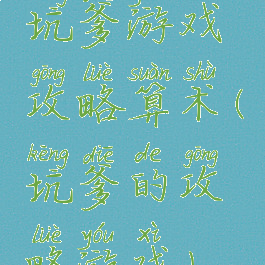 坑爹游戏
gōng lüè suàn shù
攻略算术(
kēng diē de gōng
坑爹的攻
lüè yóu xì
略游戏)